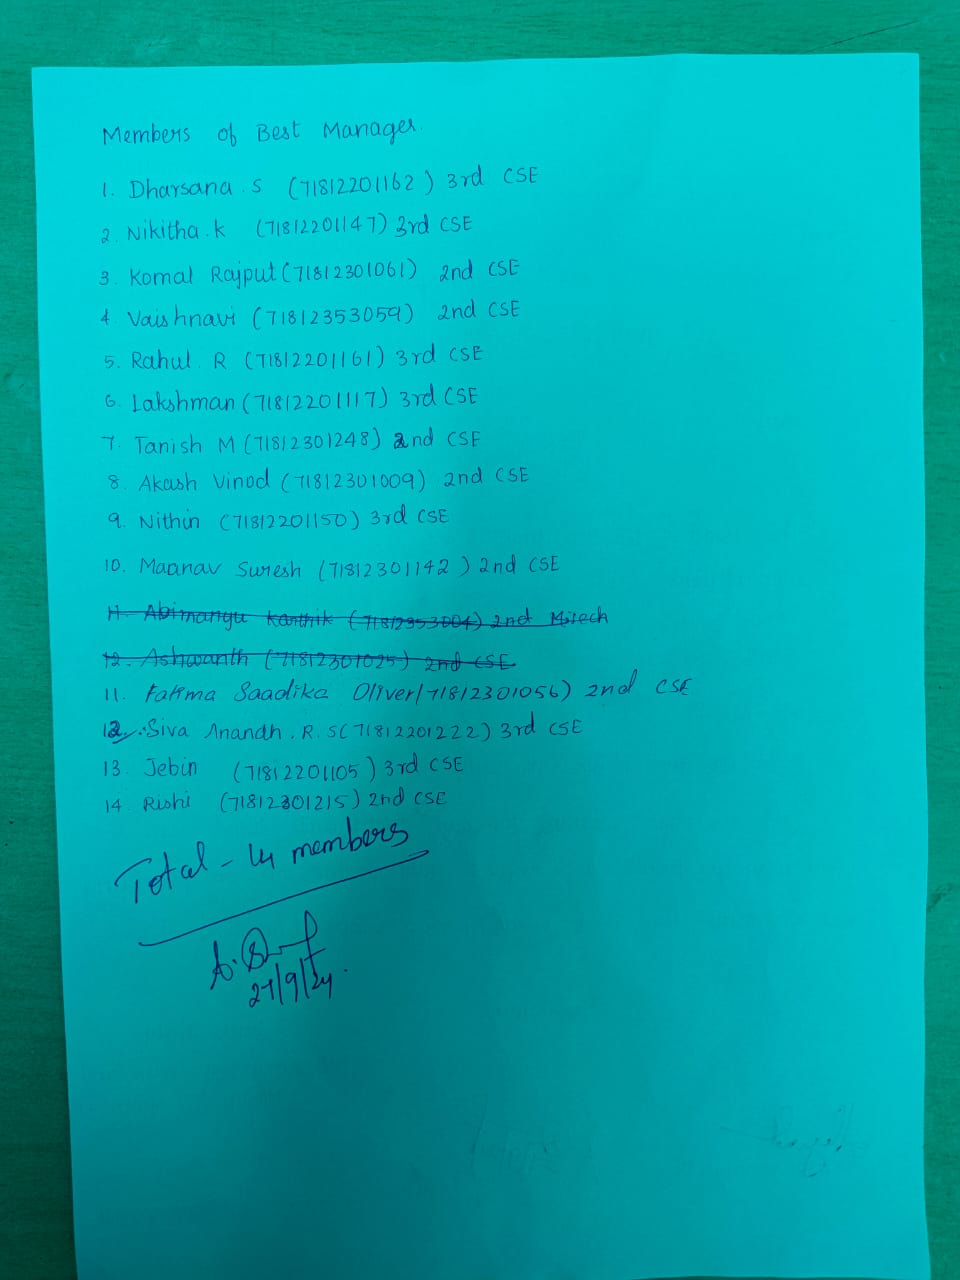 Members of Best Manager.
1. Dharsana. S (71812201162) 3rd CSE
2. Nikitha. k (71812201147) 3rd CSE
3. Komal Rajput (71812301061) 2nd CSE
4. Vaishnavi (71812353059) 2nd CSE
5. Rahul. R (71812201161) 3rd CSE
6. Lakshman (71812201117) 3rd CSE
7. Tanish M (71812301248) 2nd CSE
8. Akash Vinod (71812301009) 2nd CSE
9. Nithin (71812201150) 3rd CSE
10. Maanav Suresh (71812301142) 2nd CSE
11. Abimanyu Karthik (71812353004) 2nd
12. Ashwanth (71812301025) 2nd CSE
11. Fatima Saadika Oliver (71812301056) 2nd CSE
12. Siva Anandh. R. S (71812201222) 3rd CSE
13. Jebin (71812201105) 3rd CSE
14. Rishi (71812301215) 2nd CSE
Total - 14 members
27/9/24.